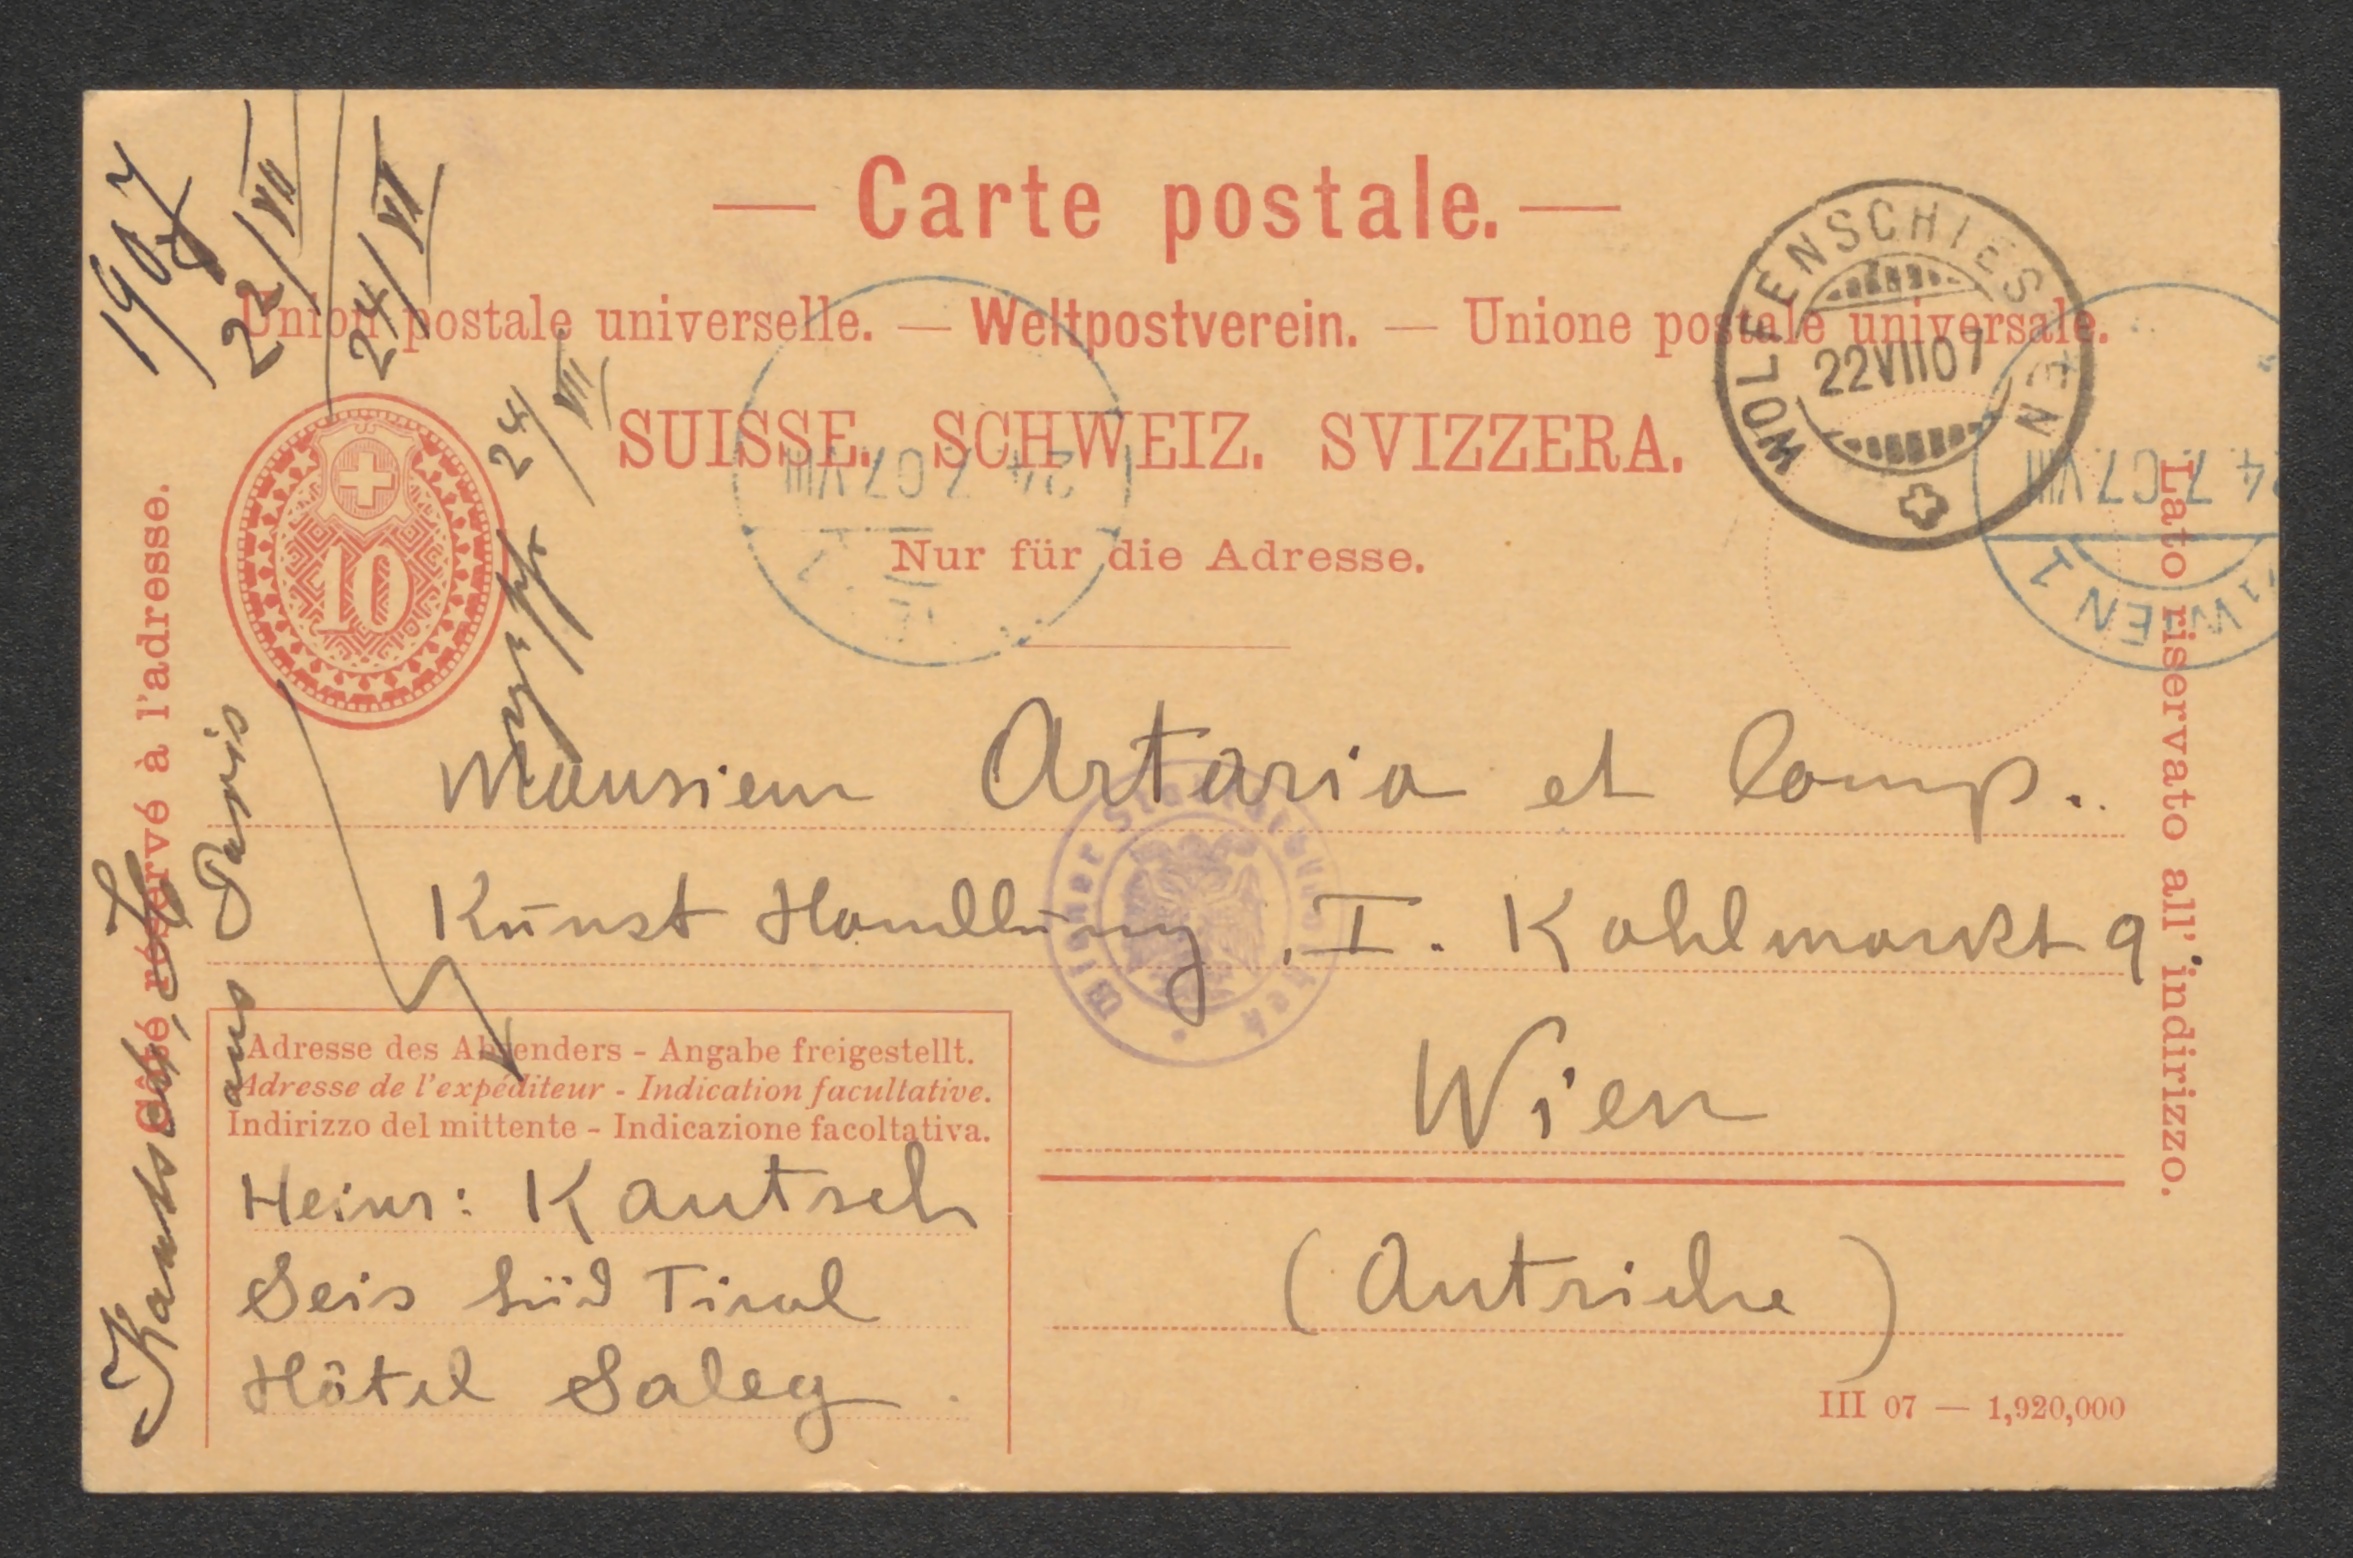 — Carte postale. —
Union postale universelle. — Weltpostverein. — Unione postale universale.
SUISSE. SCHWEIZ. SVIZZERA.
Nur für die Adresse.
WOLFENSCHIESSEN
22 VII 07
24. 7. 07 VIII
24. 7. 07 VIII
WIEN 1
10
1907
22/VII
24/VII
24/VII
Côté réservé à l'adresse.
Lato riservato all' indirizzo.
Kautsch, H.
aus Paris
Monsieur Artaria et Comp.
Kunst Handlung, I. Kohlmarkt 9.
Wien
(Autriche)
Wiener Stadtbibliothek
Adresse des Absenders - Angabe freigestellt.
Adresse de l'expéditeur - Indication facultative.
Indirizzo del mittente - Indicazione facoltativa.
Heinr: Kautsch
Seis Süd Tirol
Hôtel Saleg.
III 07 — 1,920,000